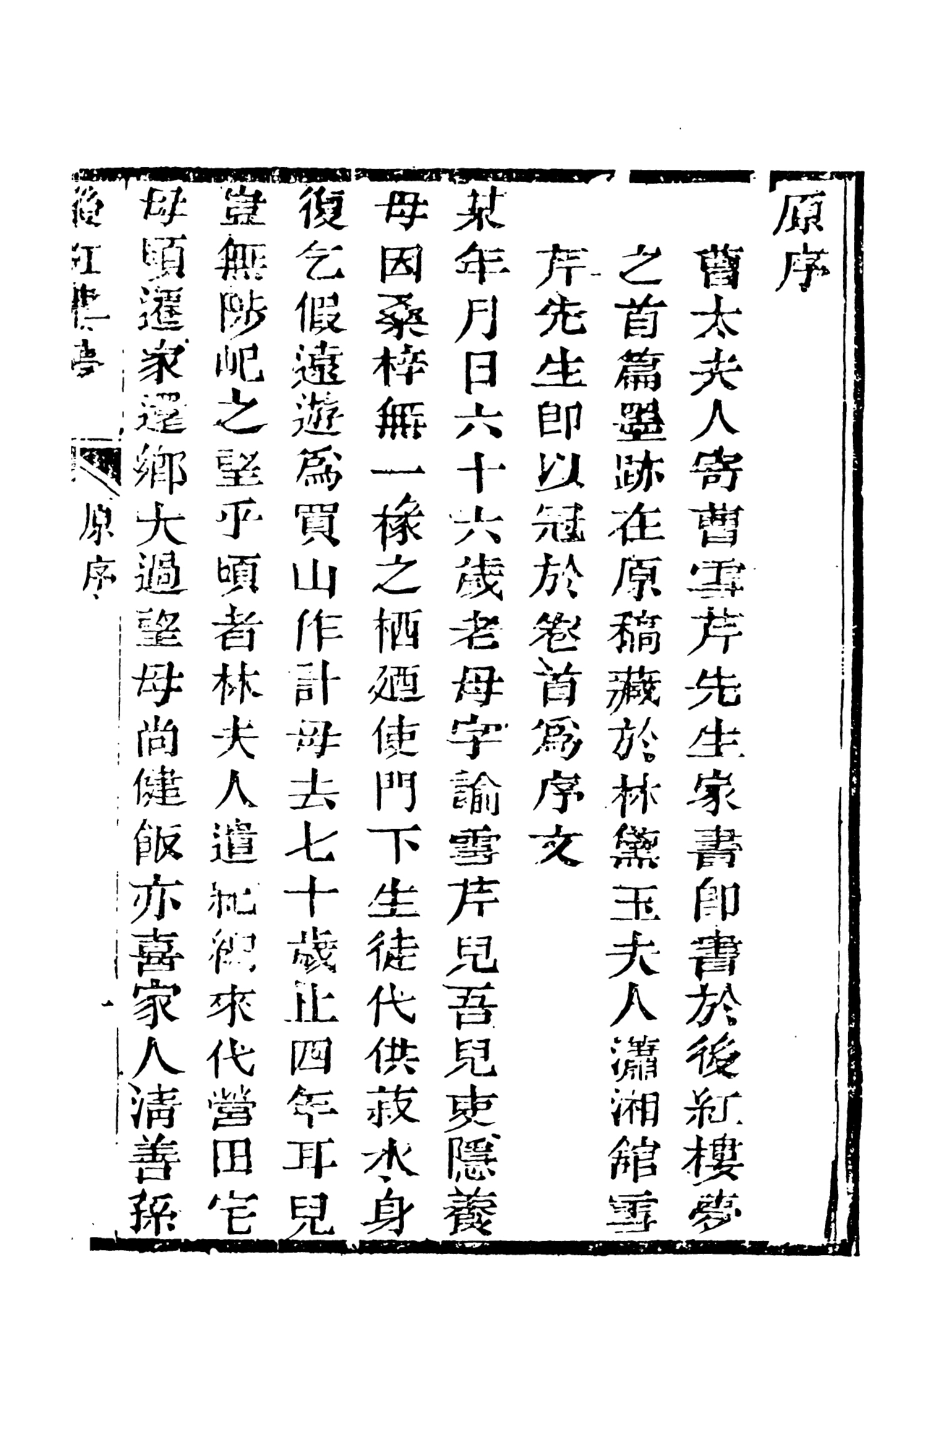 原序
曹太夫人寄曹雪芹先生家書卽書於後紅樓夢
之首篇墨跡在原稿藏於林黛玉夫人瀟湘館雪
芹先生卽以冠於卷首爲序文
某年月日六十六歲老母字諭雪芹兒吾兒吏隱養
母因桑梓無一椽之栖廼使門下生徒代供菽水身
復乞假遠遊爲買山作計母去七十歲止四年耳兒
豈無陟屺之望乎頃者林夫人遣紀綱來代營田宅
母頃遷家還鄉大過望母尚健飯亦喜家人淸善孫
後紅樓夢
原序
一